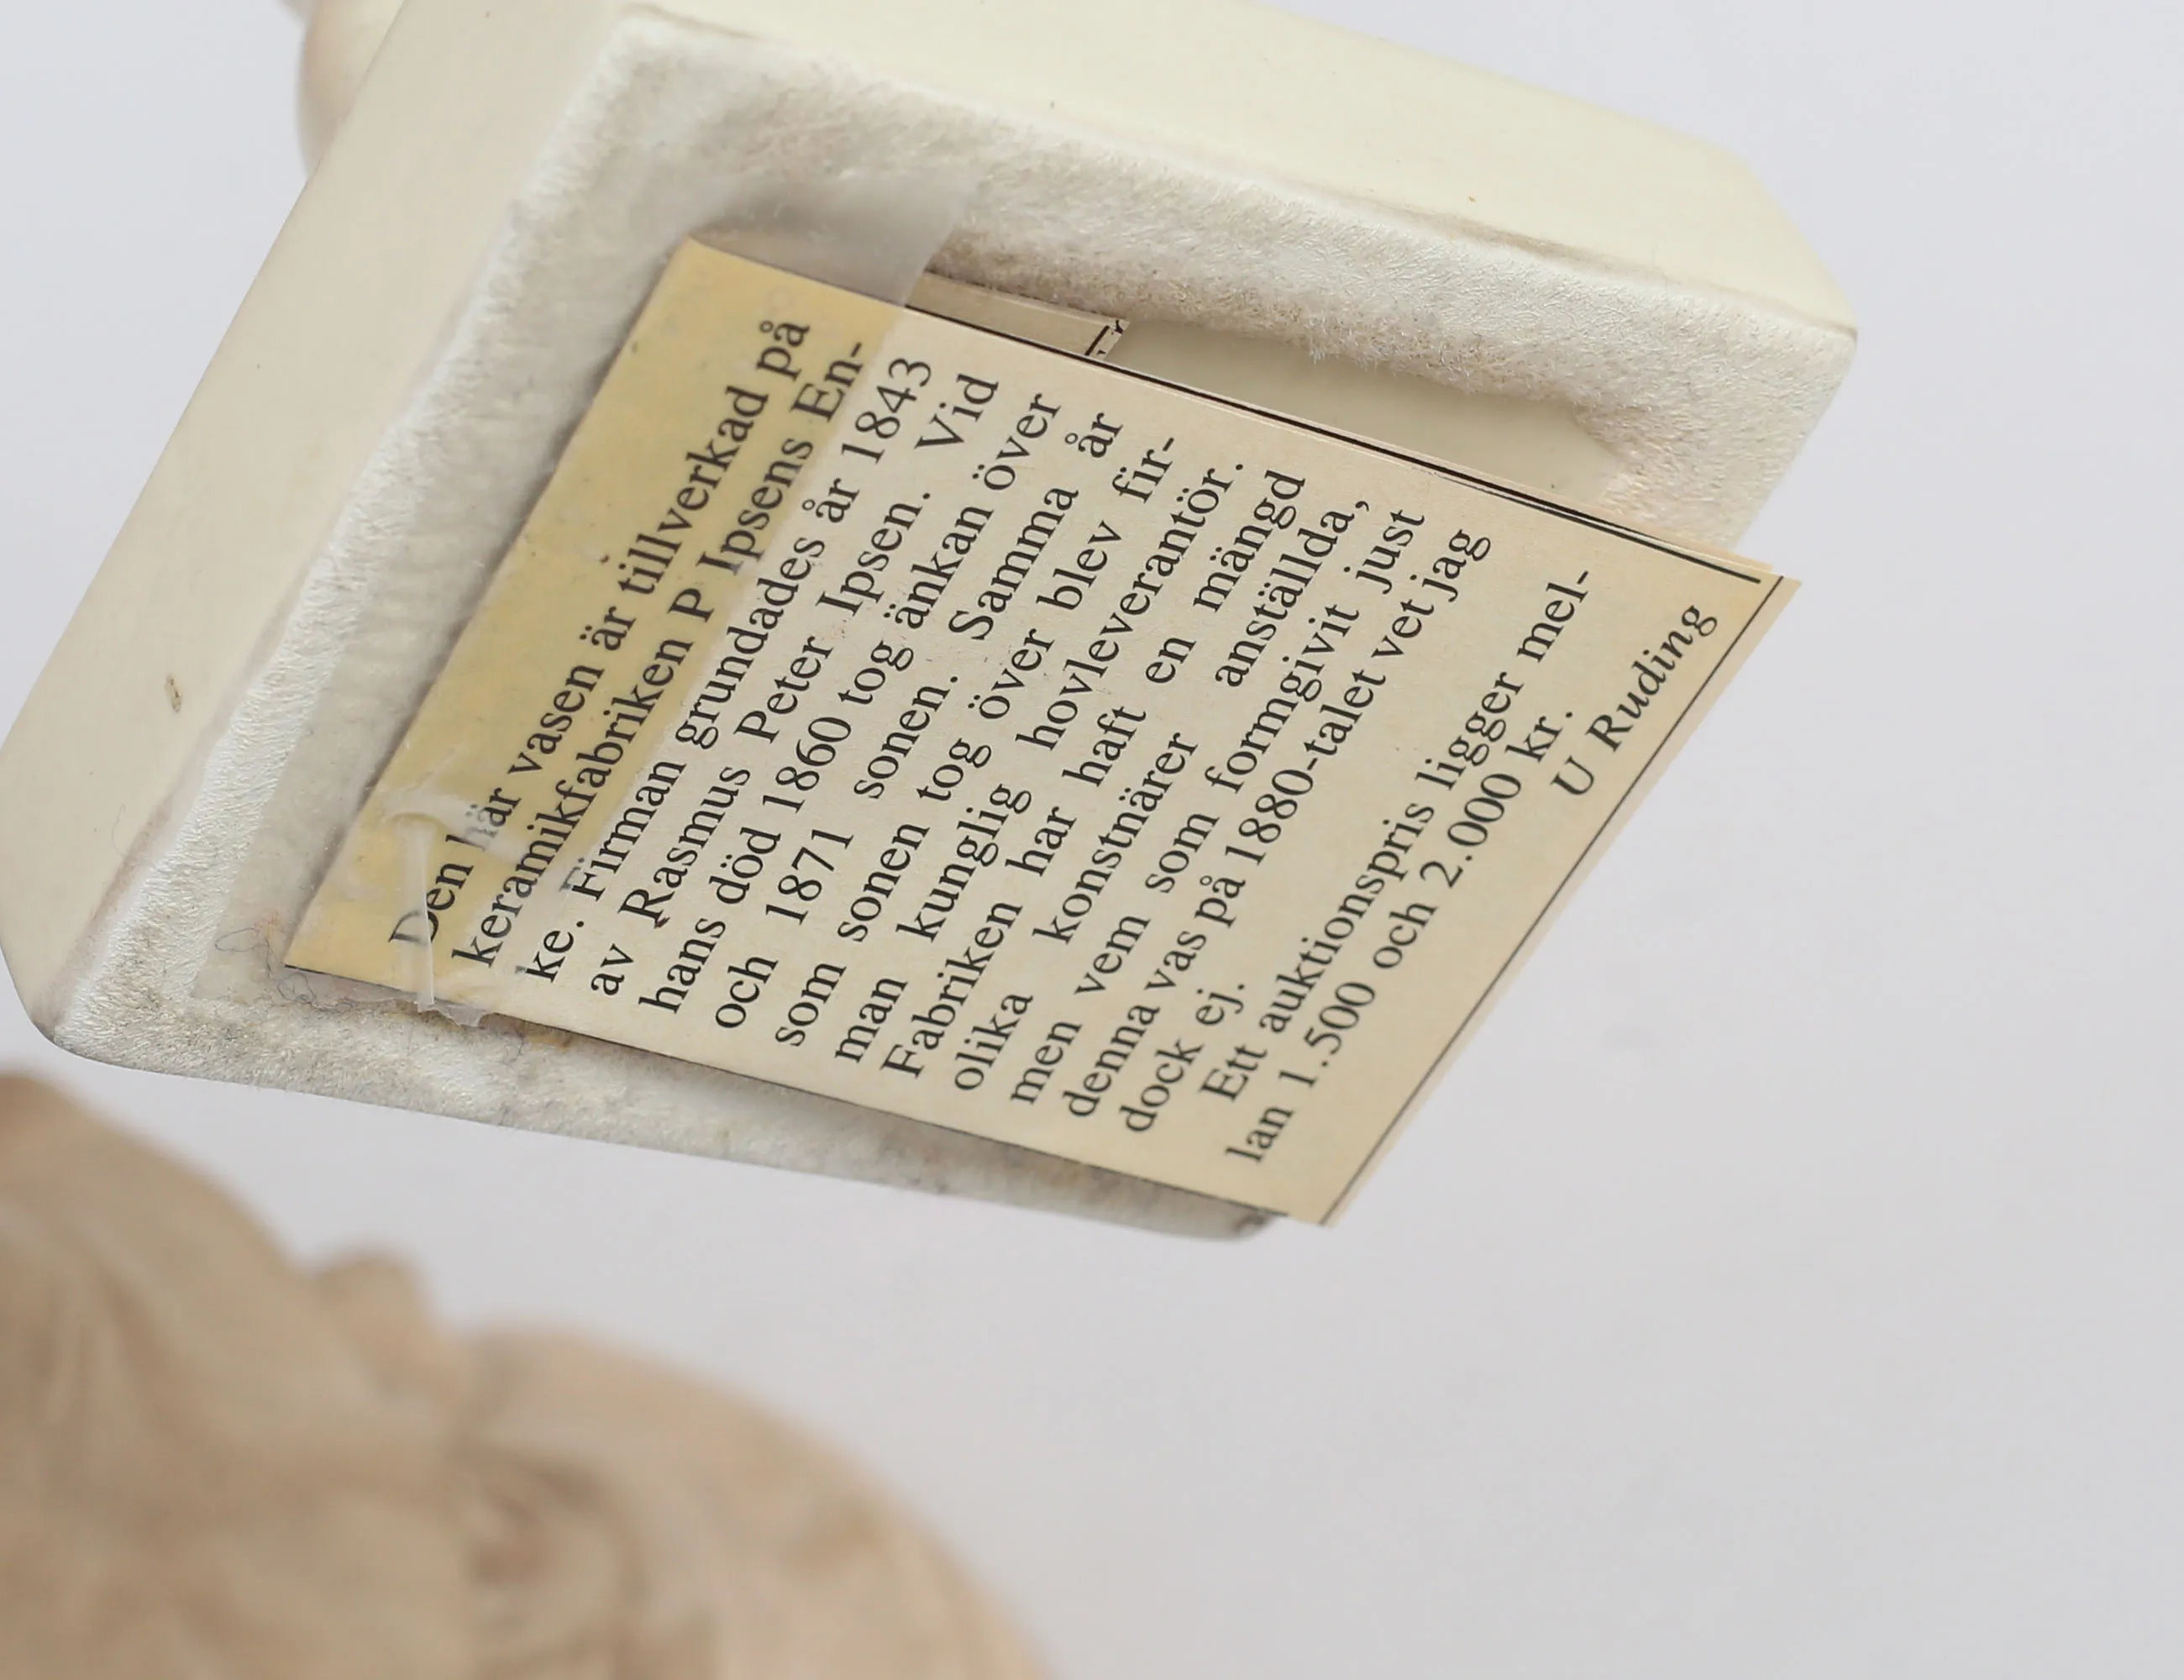 Den här vasen är tillverkad på
keramikfabriken P Ipsens En-
ke. Firman grundades år 1843
av Rasmus Peter Ipsen. Vid
hans död 1860 tog änkan över
och 1871 sonen. Samma år
som sonen tog över blev fir-
man kunglig hovleverantör.
Fabriken har haft en mängd
olika konstnärer anställda,
men vem som formgivit just
denna vas på 1880-talet vet jag
dock ej.
Ett auktionspris ligger mel-
lan 1.500 och 2.000 kr.
U Ruding